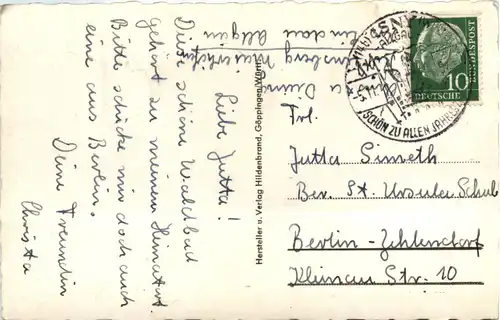 Liebe Jutta!
Diese schöne Waldbad
gehört zu meinem Heimatort.
Bitte schicke mir doch auch
eine aus Berlin.
Deine Freundin
Christa
Hersteller u. Verlag Hildenbrand, Göppingen/Württ.
ISNY
ALLGÄU
SCHÖN ZU ALLEN JAHRES
DEUTSCHE BUNDESPOST
10
Frl.
Jutta Simeth
Ber. St. Ursula Schule
Berlin-Zehlendorf
Str. 10